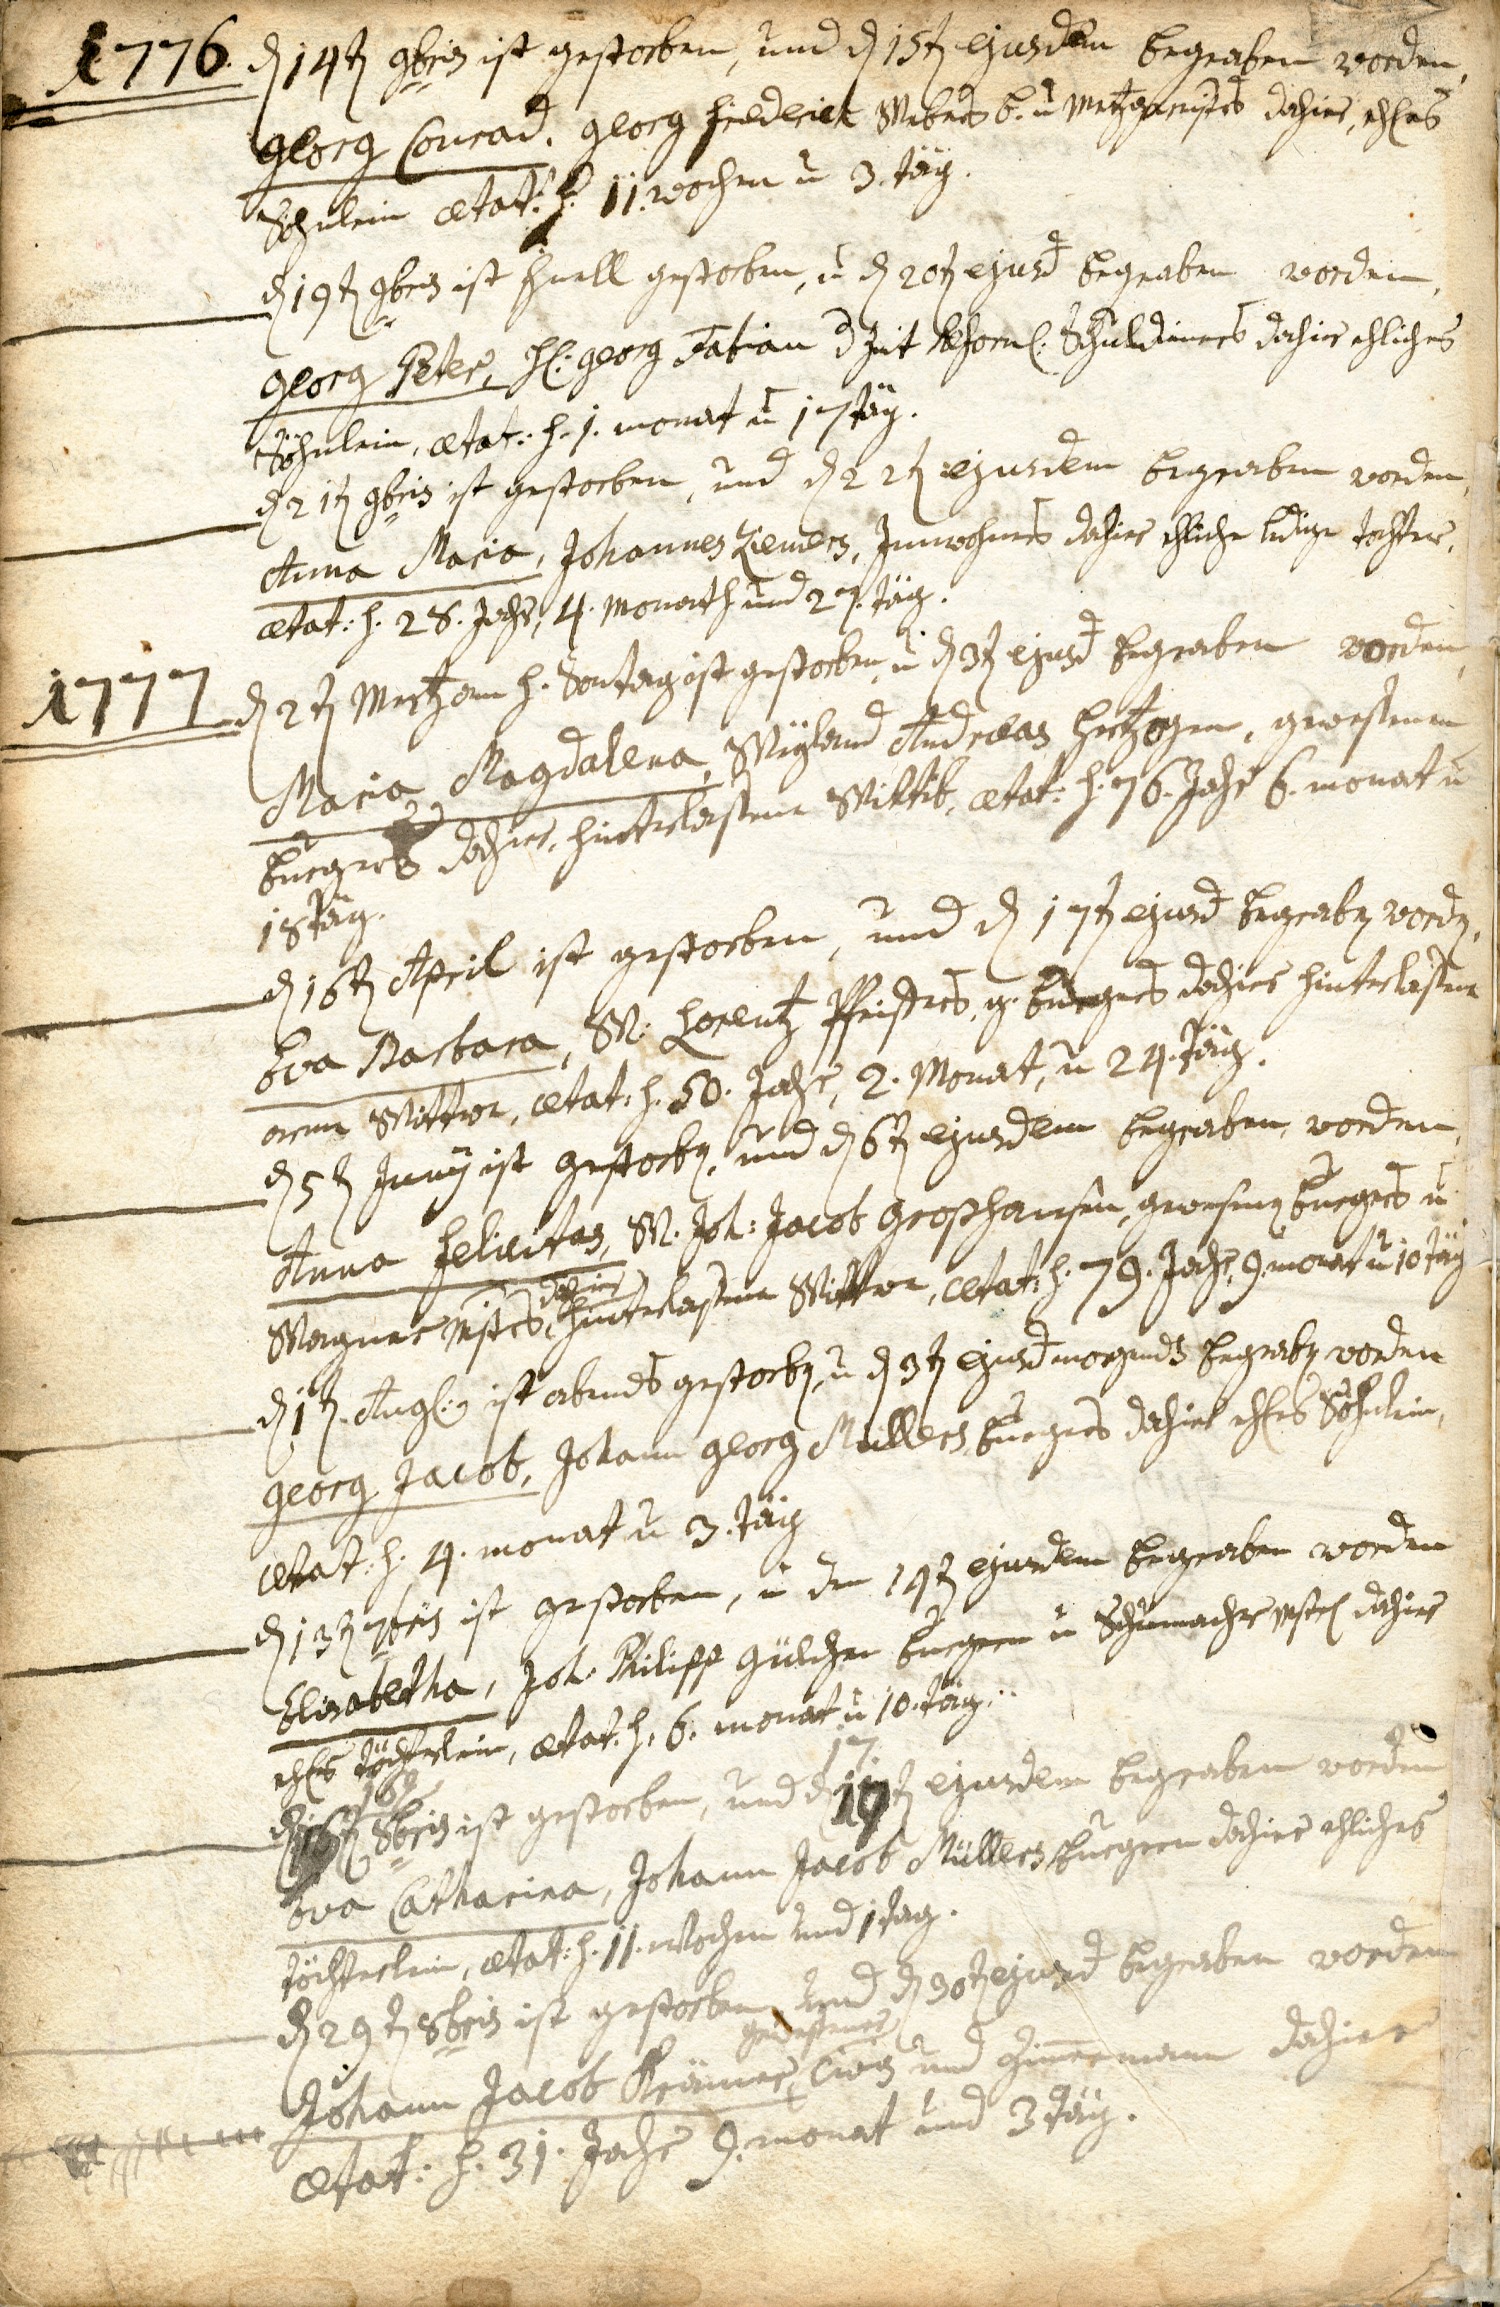 1776. d 14t 9bris ist gestorben, und d 15t ejusdem begraben worden,
Georg Conrad, Georg Friederich Webers b. u Metzgermeisters dahier, ehles
Söhnlein ætat: h. 11. wochen u 3. täg.
d 19t 9bris ist schnell gestorben, u d 20t ejusd begraben worden,
Georg Peter, H. Georg Fabian d Zeit Reform. Schuldieners dahier ehliches
Söhnlein, ætat: h. 1. monat u 17 täg.
d 21t 9bris ist gestorben, und d 22t ejusdem begraben worden,
Anna Maria, Johannes Inwohners dahier ehliche ledige tochter,
ætat: h. 28. Jahr, 4. Monath und 27. täg.
1777 d 2t Mertz am h. Sontag ist gestorben, u d 3t ejusd begraben worden,
Maria Magdalena, Weyland Andreas Hertzogen, gewesenen
burgers dahier, hinterlassene Wittib, ætat: h. 76. Jahr 6. monat u
18 täg.
d 16t April ist gestorben, und d 17t ejusd begraben worden,
Eva Barbara, W: Lorentz Pfeisters, g. burgers dahier hinterlassene
Wittwe, ætat: h. 50. Jahr, 2. Monat, u 24. täg.
d 5t Juny ist gestorben, und d 6t ejusdem begraben, worden,
Anna Felicitas, W. Joh: Jacob Großhansen, gewesenen burgers u
Wagner Mstrs dahier hinterlassene Wittwe, ætat: h. 79. Jahr, 9. monat u 10 täg
d 1t. Aug: ist abends gestorben, u d 3t ejusd morgends begraben worden
Georg Jacob, Johann Georg Müllers burgers dahier ehles Söhnlein,
ætat: h. 4. monat u 3. täg
d 13t 7bris ist gestorben, u den 14t ejusdem begraben worden
Elisabetha, Joh. Philipp Gülcher burgern u Schumacher Mstr dahier
ehles töchterlein, ætat: h. 6. monat u 10. täg.
d 16t 8bris ist gestorben, und d 17t ejusdem begraben worden
Eva Catharina, Johann Jacob Müllers burgern dahier ehliches
töchterlein, ætat: h. 11. wochen und 1 tag.
d 29t 8bris ist gestorben und d 30t ejusd begraben worden
Johann Jacob Krämer, gewesener civis und Zimmermann dahier
ætat: h. 31. Jahr 9. monat und 3 täg.